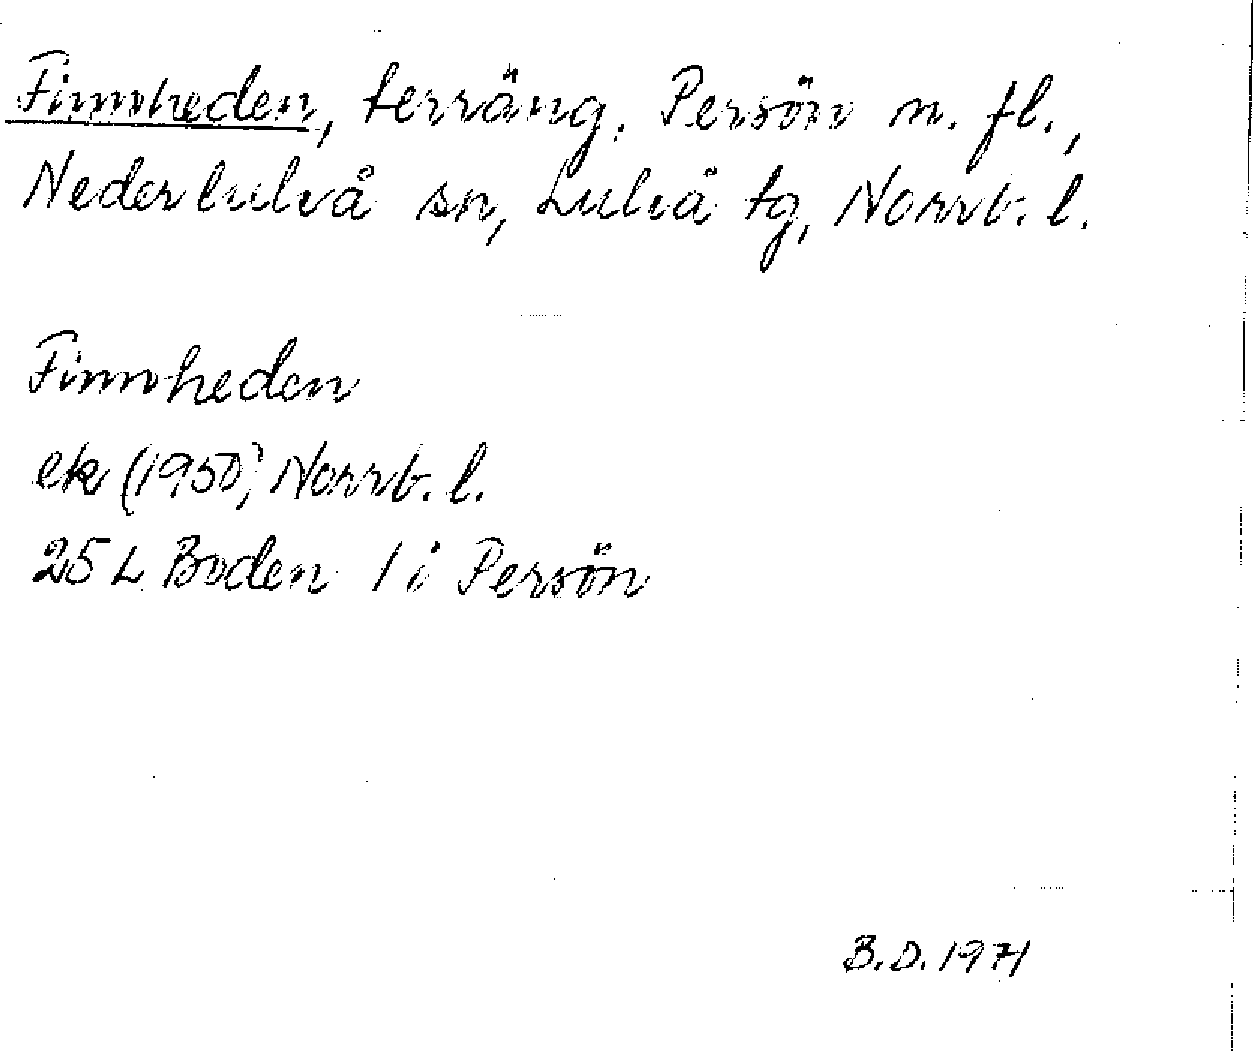 Finnheden, terräng, Persön m. fl.,
Nederluleå sn, Luleå tg, Norrb. l.
Finnheden
ek (1950), Norrb. l.
25 L Boden / i Persön
B.D. 1971